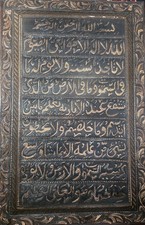 بسم الله الرحمن الرحيم
الله لا اله الا هو الحي القيوم
لا تاخذه سنة ولا نوم له ما
في السموت وما في الارض من ذا الذي
يشفع عنده الا باذنه يعلم ما بين
ايديهم وما خلفهم ولا يحيطون
بشيء من علمه الا بما شاء وسع
كرسيه السموت والارض ولا يؤده
حفظهما وهو العلي العظيم